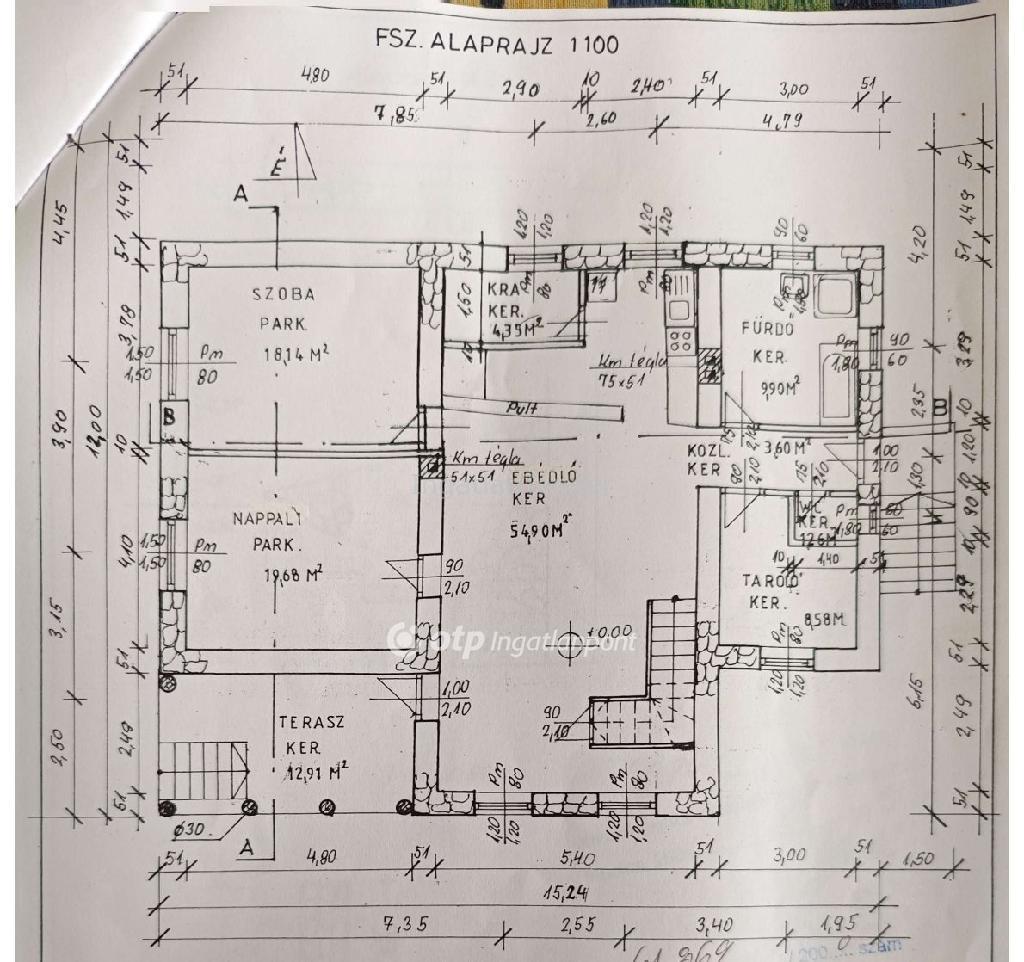 FSZ. ALAPRAJZ 1:100
51 4,80 51 2,90 10 2,40 51 3,00 51
7,85 2,60 4,79
É
A
51 1,49 51 3,78 10 4,10 51 2,49 51
4,45 3,90 3,15 2,60
12,00
SZOBA
PARK.
18,14 M²
1,50
1,50
Pm
80
B
NAPPALI
PARK.
19,68 M²
1,50
1,50
Pm
80
KRA
KER.
4,35 M²
51
1,60
10
1,20
1,20
Pm
80
1,20
1,20
Pm
80
Km tégla
75x51
Pult
Km tégla
51x51
EBÉDLŐ
KER
54,90 M²
90
2,10
±0.00
otp Ingatlanpont
1,00
2,10
90
2,10
FÜRDŐ
KER.
9,90 M²
90
60
Pm
1,80
90
60
KÖZL.
KER
3,60 M²
75
2,10
90
2,10
75
2,10
1,00
2,10
WC
KER.
1,26 M²
Pm
1,80
60
60
10 1,40 51
TÁROLÓ
KER.
8,58 M
Pm
80
1,20
1,20
TERASZ
KER.
12,91 M²
Ø30
A
Pm
80
1,20
1,20
Pm
80
1,20
1,20
4,20 2,35 1,30 6,15
B
51 1,49 51 3,29 10 1,20 10 90 10 2,29 51 2,49 51
51 4,80 51 5,40 51 3,00 51 1,50
15,24
7,35 2,55 3,40 1,95
200 szám